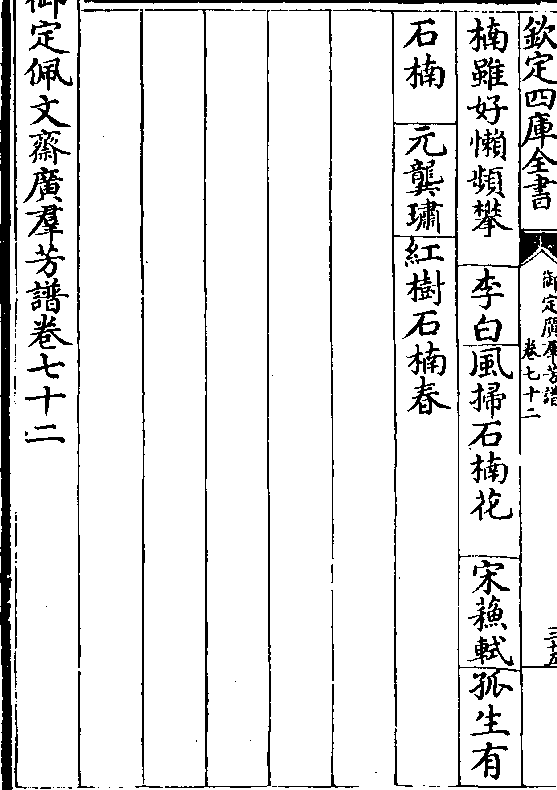 欽定四庫全書
御定廣羣芳譜
卷七十二
三十五
楠雖好懶頻攀 李白風掃石楠花 宋蘓軾孤生有
石楠 元龔璛紅樹石楠春
御定佩文齋廣羣芳譜卷七十二